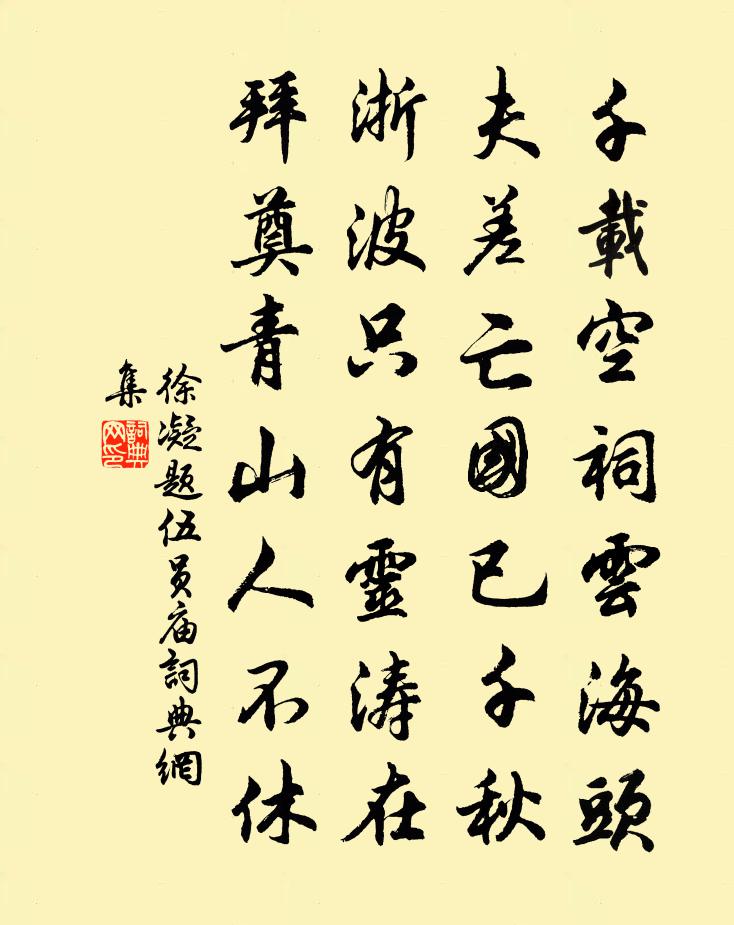 千載空祠雲海頭
夫差亡國已千秋
浙波只有靈涛在
拜奠青山人不休
徐凝题伍员庙詞典網
集
詞典
网印